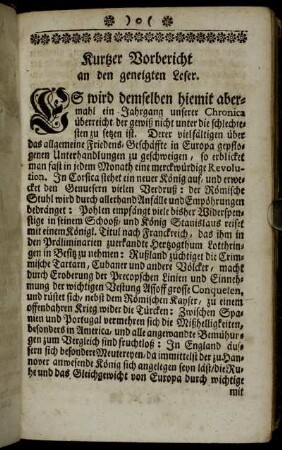 ) o (
Kurtzer Vorbericht
an den geneigten Leser.
ES wird demselben hiemit aber-
mahl ein Jahrgang unserer Chronica
überreicht der gewiß nicht unter die schlechte-
sten zu setzen ist. Derer vielfältigen über
das allgemeine Friedens-Geschäffte in Europa gepflo-
genen Unterhandlungen zu geschweigen, so erblicket
man fast in jedem Monath eine merckwürdige Revolu-
tion. In Corsica stehet ein neuer König auf, und erwe-
cket den Genuesern vielen Verdruß: der Römische
Stuhl wird durch allerhand Anfälle und Empöhrungen
bedränget: Pohlen empfängt viele bißher Widerspen-
stige in seinem Schooß, und König Stanislaus reiset
mit einem Königl. Titul nach Franckreich, das ihm in
den Präliminarien zuerkandte Hertzogthum Lothrin-
gen in Besitz zu nehmen: Rußland züchtiget die Crimi-
sche Tartarn, Cubaner und andere Völcker, macht
durch Eroberung der Precopschen Linien und Einneh-
mung der wichtigen Vestung Assoff grosse Conquesten,
und rüstet sich, nebst dem Römischen Kayser, zu einem
offenbahren Krieg wider die Türcken: Zwischen Spa-
nien und Portugal vermehren sich die Mißhelligkeiten,
besonders in America, und alle angewandte Bemühun-
gen zum Vergleich sind fruchtloß: In England äus-
sern sich besondere Meutereyen, da immittelst der zu Han-
nover anwesende König sich angelegen seyn läst, die Ru-
he und das Gleichgewicht von Europa durch wichtige
mit